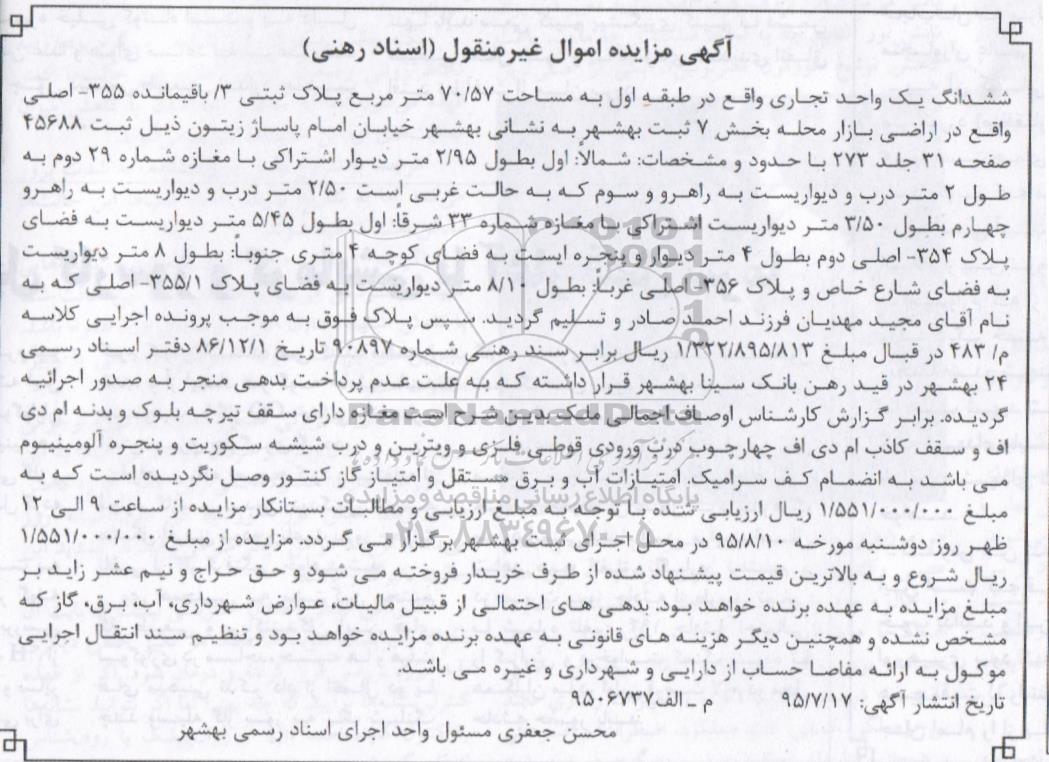 آگهی مزایده اموال غیر منقول (اسناد رهنی)
ششدانگ یک واحد تجاری واقع در طبقه اول به مساحت ۷۰/۵۷ متر مربع پلاک ثبتی ۳/ باقیمانده ۳۵۵- اصلی
واقع در اراضی بازار محله بخش ۷ ثبت بهشهر به نشانی بهشهر خیابان امام پاساژ زیتون ذیل ثبت ۴۵۶۸۸
صفحه ۳۱ جلد ۲۷۳ با حدود و مشخصات: شمالاً: اول بطول ۲/۹۵ متر دیوار اشتراکی با مغازه شماره ۲۹ دوم به
طول ۲ متر درب و دیواریست به راهرو و سوم که به حالت غربی است ۲/۵۰ متر درب و دیواریست به راهرو
چهارم بطول ۳/۵۰ متر دیواریست اشتراکی با مغازه شماره ۳۳ شرقاً: اول بطول ۵/۴۵ متر دیواریست به فضای
پلاک ۳۵۴- اصلی دوم بطول ۴ متر دیوار و پنجره ایست به فضای کوچه ۴ متری جنوباً: بطول ۸ متر دیواریست
به فضای شارع خاص و پلاک ۳۵۶- اصلی غرباً: بطول ۸/۱۰ متر دیواریست به فضای پلاک ۳۵۵/۱- اصلی که به
نام آقای مجید مهدیان فرزند احمد صادر و تسلیم گردید. سپس پلاک فوق به موجب پرونده اجرایی کلاسه
م/ ۴۸۳ در قبال مبلغ ۱/۳۲۲/۸۹۵/۸۱۳ ریال برابر سند رهنی شماره ۹۰۸۹۷ تاریخ ۸۶/۱۲/۱ دفتر اسناد رسمی
۲۴ بهشهر در قید رهن بانک سینا بهشهر قرار داشته که به علت عدم پرداخت بدهی منجر به صدور اجرائیه
گردیده. برابر گزارش کارشناس اوصاف اجمالی ملک بدین شرح است مغازه دارای سقف تیرچه بلوک و بدنه ام دی
اف و سقف کاذب ام دی اف چهارچوب درب ورودی قوطی فلزی و ویترین و درب شیشه سکوریت و پنجره آلومینیوم
می باشد به انضمام کف سرامیک. امتیازات آب و برق مستقل و امتیاز گاز کنتور وصل نگردیده است که به
مبلغ ۱/۵۵۱/۰۰۰/۰۰۰ ریال ارزیابی شده با توجه به مبلغ ارزیابی و مطالبات بستانکار مزایده از ساعت ۹ الی ۱۲
ظهر روز دوشنبه مورخه ۹۵/۸/۱۰ در محل اجرای ثبت بهشهر برگزار می گردد مزایده از مبلغ ۱/۵۵۱/۰۰۰/۰۰۰
ریال شروع و به بالاترین قیمت پیشنهاد شده از طرف خریدار فروخته می شود و حق حراج و نیم عشر زاید بر
مبلغ مزایده به عهده برنده خواهد بود. بدهی های احتمالی از قبیل مالیات، عوارض شهرداری، آب، برق، گاز که
مشخص نشده و همچنین دیگر هزینه های قانونی به عهده برنده مزایده خواهد بود و تنظیم سند انتقال اجرایی
موکول به ارائه مفاصا حساب از دارایی و شهرداری و غیره می باشد.
تاریخ انتشار آگهی: ۹۵/۷/۱۷ م ـ الف: ۹۵۰۶۷۷
محسن جعفری مسئول واحد اجرای اسناد رسمی بهشهر
ParsNamadData
پایگاه اطلاع رسانی مناقصه و مزایده
۰۲۱-۸۸۳۴۹۶۷۰-۵